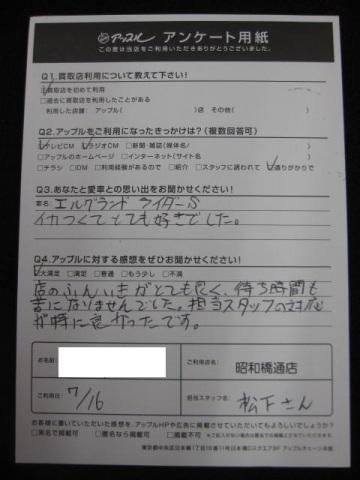 アップル アンケート用紙
この度は当店をご利用いただきありがとうございました。
Q1.買取店利用について教えて下さい!
□買取店を初めて利用
□過去に買取店を利用したことがある
利用した店舗: アップル( )店 その他( )
Q2.アップルをご利用になったきっかけは?(複数回答可)
□テレビCM □ラジオCM □新聞・雑誌(媒体名/ )
□アップルのホームページ □インターネット(サイト名 )
□チラシ □DM □利用経験があるので □紹介 □スタッフに誘われて □通りがかりで
Q3.あなたと愛車との思い出をお聞かせください!
車名: エルグランド ライダーS
イカつくてとても好きでした。
Q4.アップルに対する感想をぜひお聞かせください!
□大満足 □満足 □普通 □もう少し □不満
店のふんいきがとても良く、待ち時間も
苦になりませんでした。担当スタッフの対応
が特に良かったです。
お名前
ご利用店名: 昭和橋通店
ご利用日: 7/16
担当スタッフ名: 松下さん
お客様に書いていただいた感想を、アップルHPや広告に掲載させていただいてもよろしいでしょうか?
□実名で掲載可 □匿名なら掲載可 □掲載不可